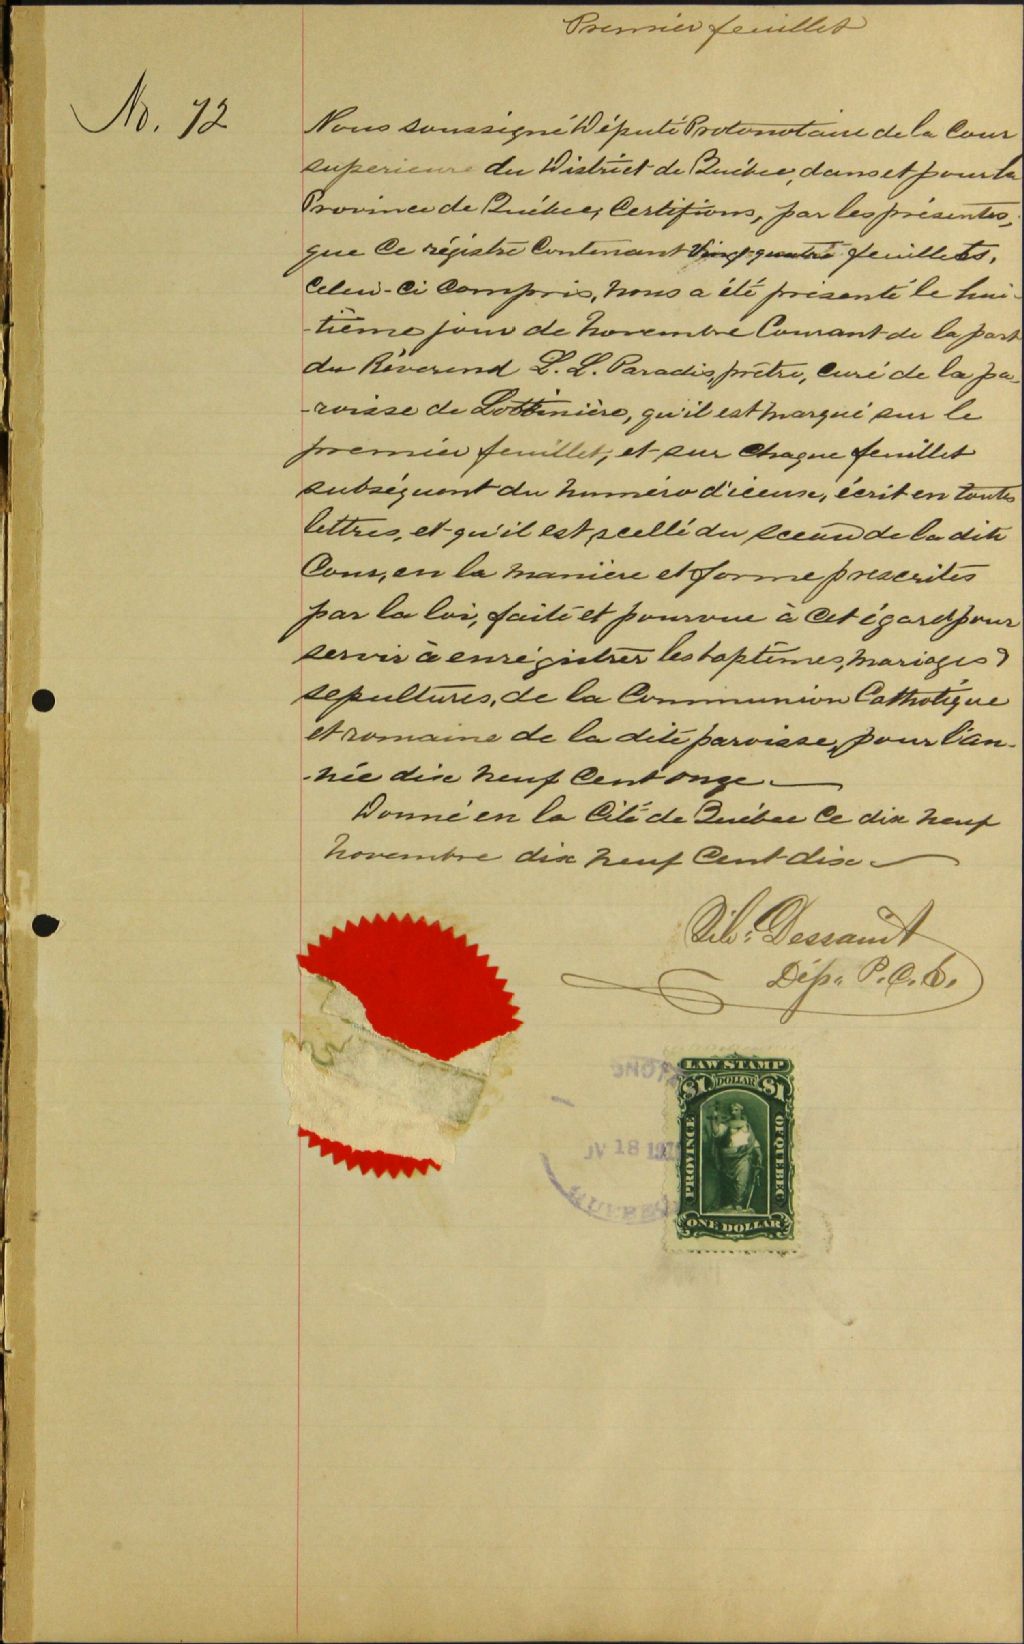 Premier feuillet
No. 72
Nous soussigné Député Protonotaire de la Cour
superieure du District de Québec, dans et pour la
Province de Québec, Certifions, par les présentes,
que ce régistre contenant vingt quatre feuillets,
celui-ci compris, nous a été présenté le hui-
-tième jour de novembre Courant de la part
du Révérend L. L. Paradis, prêtre, curé de la pa-
-roisse de Lotbinière, qu'il est marqué sur le
premier feuillet, et sur chaque feuillet
subséquent du numéro d'iceux, écrit en toutes
lettres, et qu'il est scellé du sceau de la dite
Cour, en la manière et forme prescrites
par la loi, faite et pourvue à cet égard pour
servir à enrégistrer les baptêmes, mariages &
sepultures, de la Communion Catholique
et romaine de la dite paroisse, pour l'an-
-née dix neuf cent onze.
Donné en la Cité de Québec ce dix neuf
novembre dix neuf Cent dix
Dessault
Dép. P.C.S.
LAW STAMP
$1 DOLLAR $1
PROVINCE OF QUEBEC
ONE DOLLAR
18